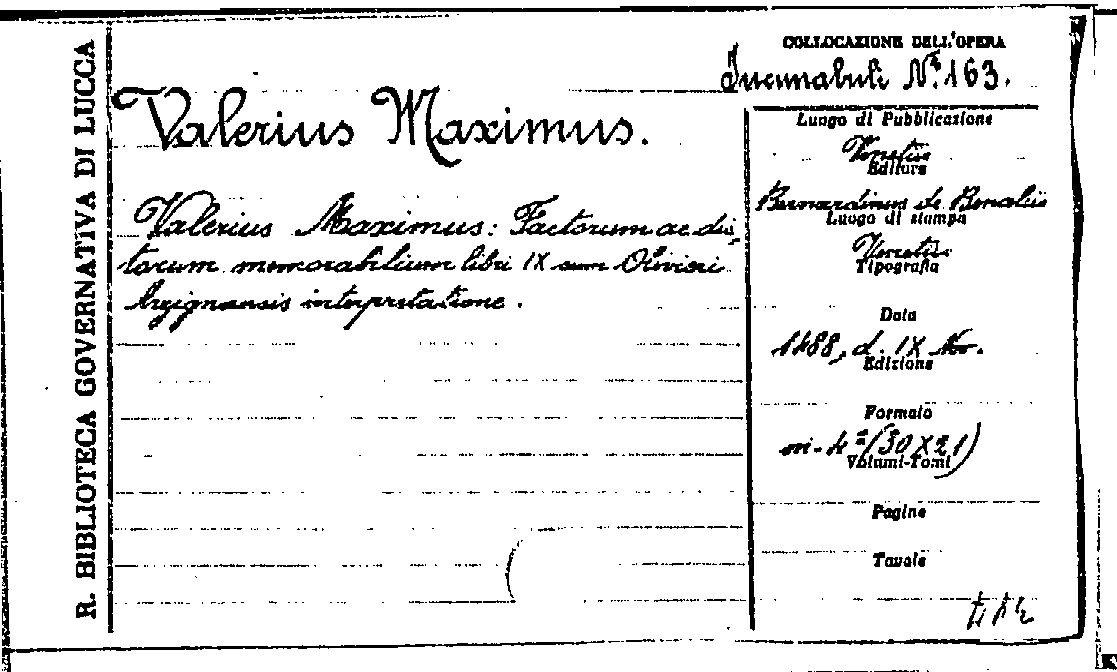 R. BIBLIOTECA GOVERNATIVA DI LUCCA
COLLOCAZIONE DELL'OPERA
Incunabuli N.º 163.
Valerius Maximus.
Valerius Maximus: Factorum ac dic-
torum memorabilium libri IX cum Oliverii
interpretatione.
Luogo di Pubblicazione
Venetiis
Editore
Bernardinus de Benaliis
Luogo di stampa
Venetiis
Tipografia
Data
1488, d. IX Nov.
Edizione
Formato
in-4º (30 X 21)
Volumi-Tomi
Pagine
Tavole